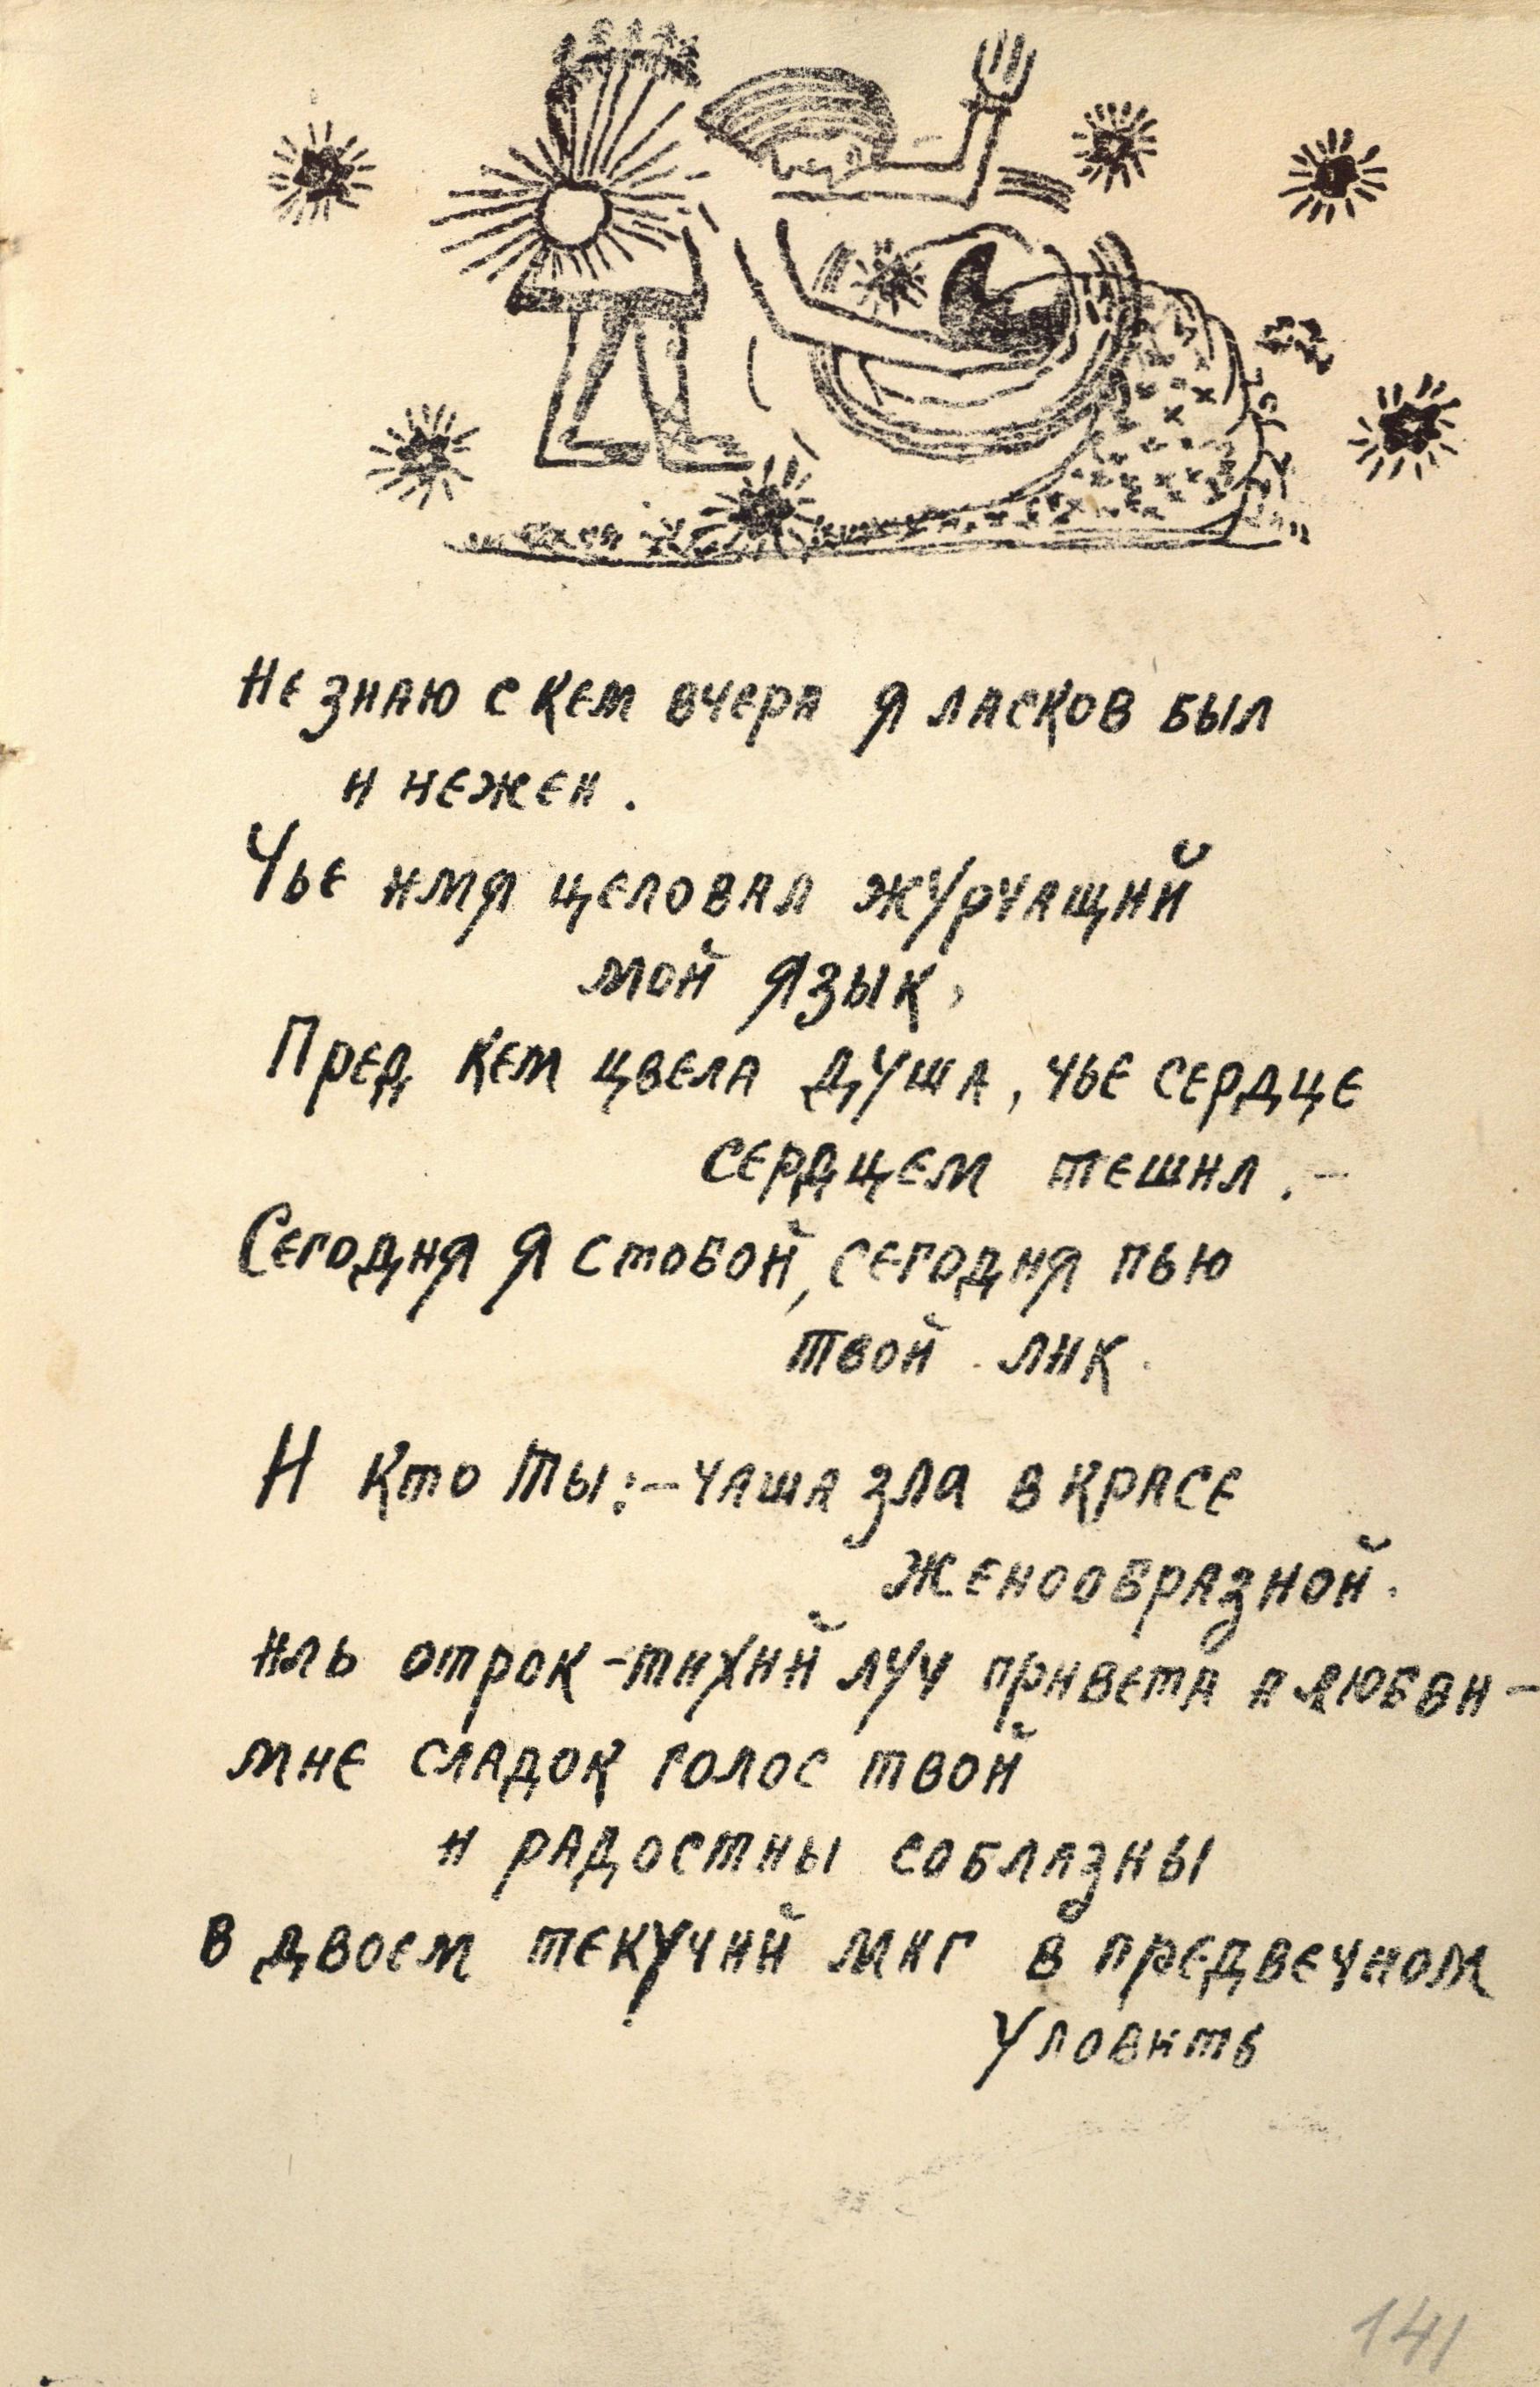 Не знаю с кем вчера я ласков был
и нежен.
Чье имя целовал журчащий
мой язык,
Пред кем цвела душа, чье сердце
сердцем тешил. –
Сегодня я с тобой, сегодня пью
твой лик.
И кто ты: – чаша зла в красе
женообразной.
иль отрок – тихий луч привета и любви –
мне сладок голос твой
и радостны соблазны
в двоем текучий миг в предвечном
уловить
141